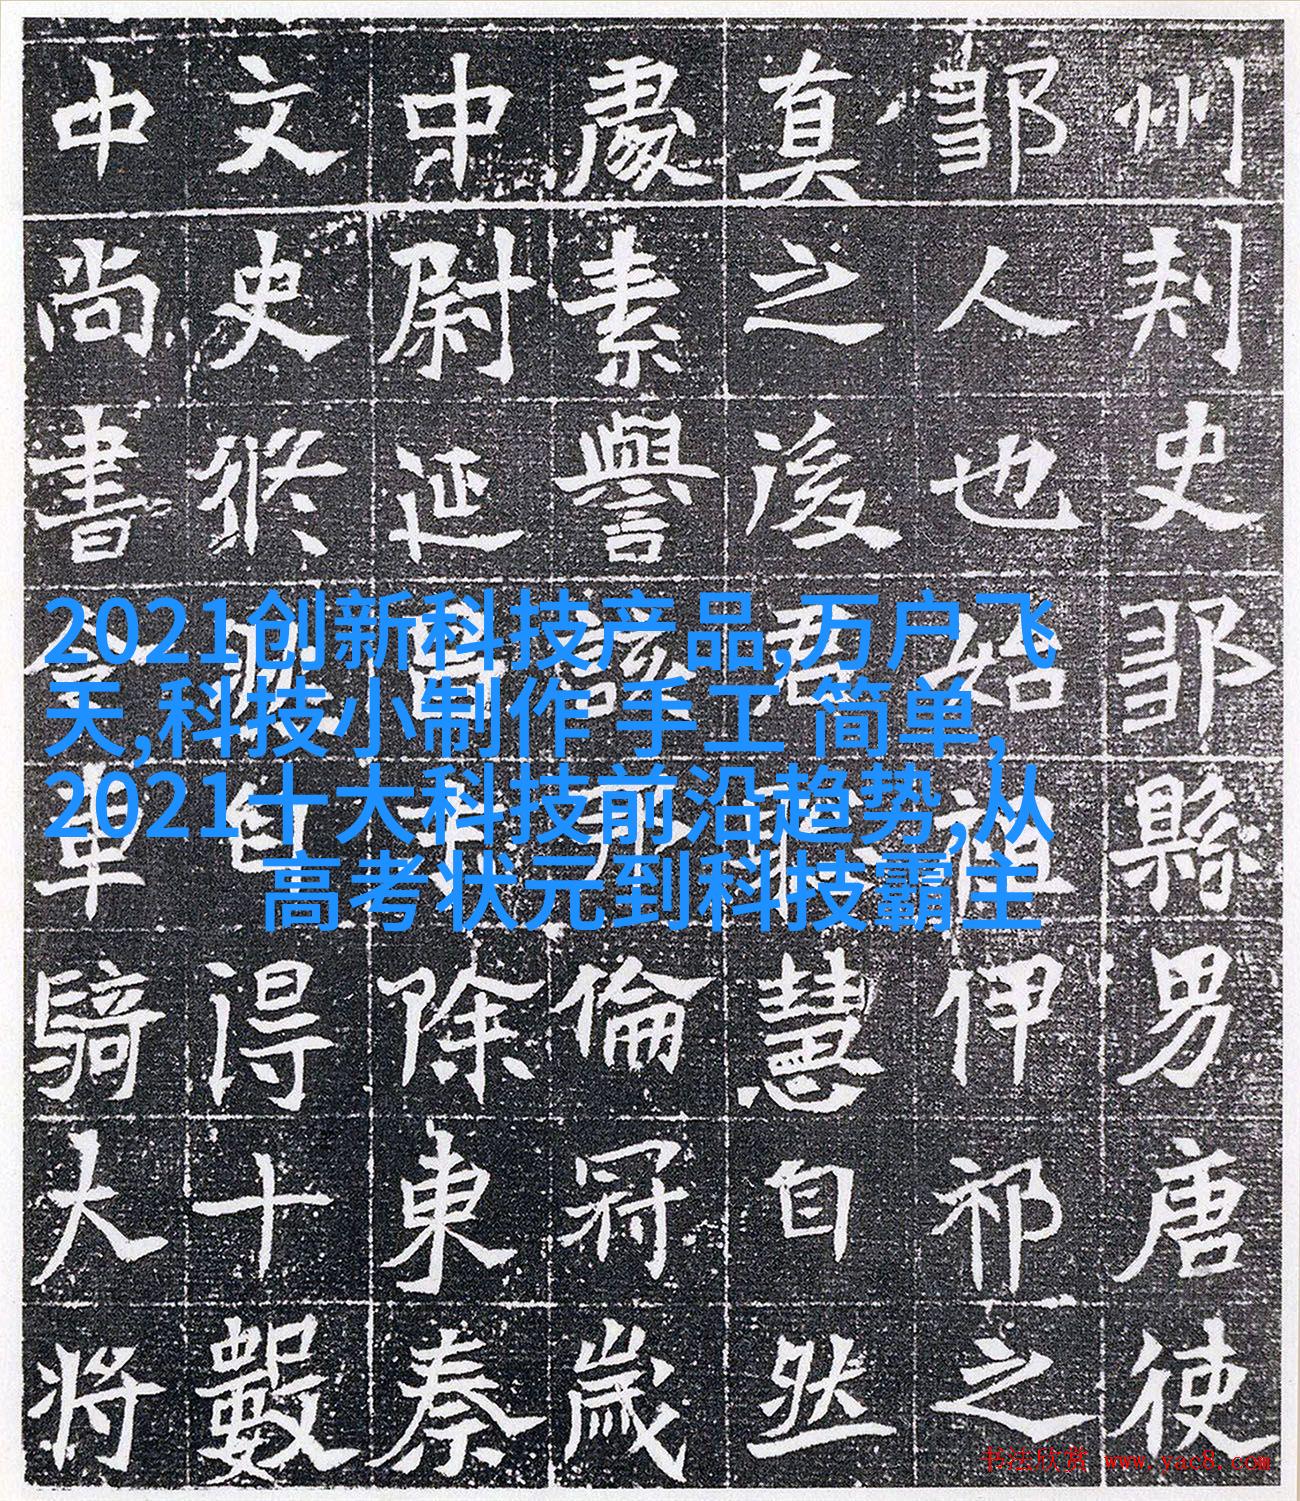 2021创新科技产品,万户飞
天,科技小制作 手工 简单,
2021十大科技前沿趋势,从
高考状元到科技霸主
州刾史鄒縣男唐使
鄒人也始祖伊祁之
真之後君聰慧自然
處素譽該倫冠歲
中尉延昌除東秦
文史自得十數
中尚書令車騎大將
书法欣赏 www.yac8.com